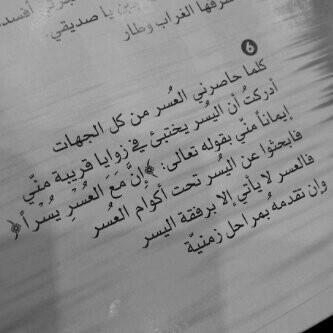 سرقها الغراب وطار
يا صديقي
6
كلما حاصرني العُسر من كل الجهات
أدركتُ أن اليُسر يختبئ في زوايا قريبة منّي
إيماناً منّي بقوله تعالى: ﴿إِنَّ مَعَ العُسْرِ يُسْراً﴾
فابحثوا عن اليُسر تحت أكوام العُسر
فالعسر لا يأتي إلا برفقة اليسر
وإن تقدمه بمراحل زمنيّة